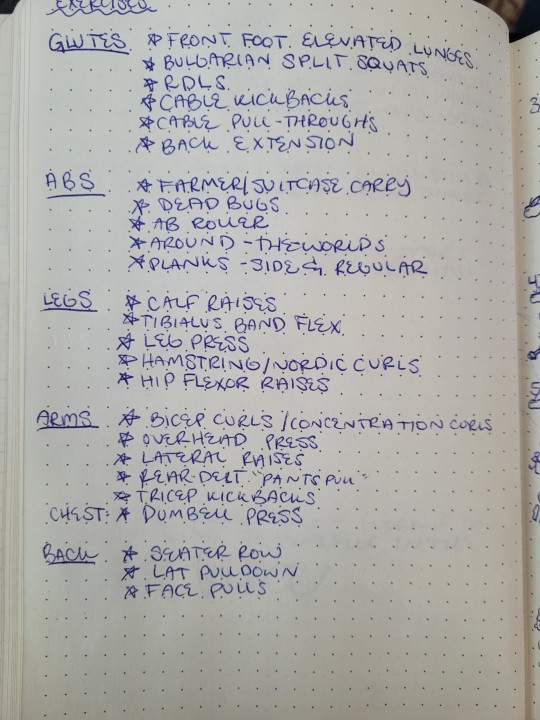 EXERCISES
GLUTES ☆ FRONT FOOT ELEVATED LUNGES
☆ BULGARIAN SPLIT SQUATS
☆ RDLS
☆ CABLE KICKBACKS
☆ CABLE PULL-THROUGHS
☆ BACK EXTENSION
ABS ☆ FARMER/SUITCASE CARRY
☆ DEAD BUGS
☆ AB ROLLER
☆ AROUND-THE WORLDS
☆ PLANKS - SIDE & REGULAR
LEGS ☆ CALF RAISES
☆ TIBIALUS BAND FLEX
☆ LEG PRESS
☆ HAMSTRING/NORDIC CURLS
☆ HIP FLEXOR RAISES
ARMS ☆ BICEP CURLS / CONCENTRATION CURLS
☆ OVERHEAD PRESS
☆ LATERAL RAISES
☆ REAR-DELT "PANTS PULL"
☆ TRICEP KICKBACKS
CHEST: ☆ DUMBELL PRESS
BACK ☆ SEATER ROW
☆ LAT PULLDOWN
☆ FACE PULLS